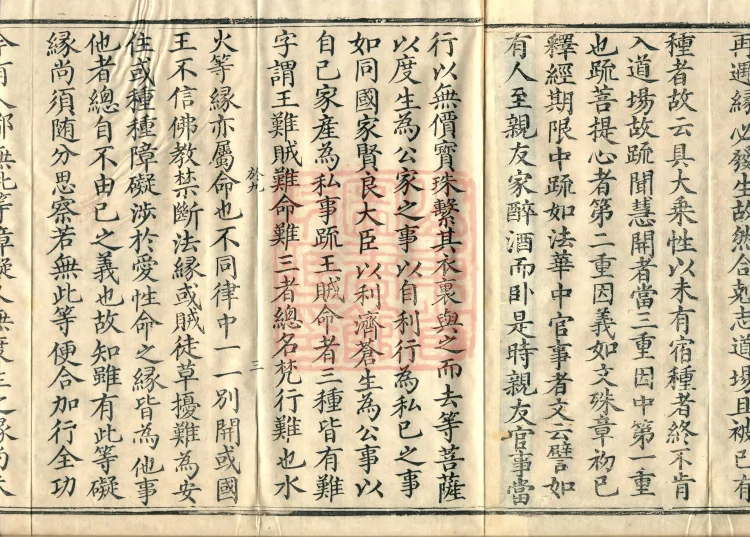 再遇緣必發生故然合剋志道場且被已有
種者故云具大乗性以未有宿種者終不肯
入道場故䟽聞慧開者當三重因中第一重
也䟽菩提心者第二重因義如文殊章初已
釋經期限中䟽如法華中官事者文云譬如
有人至親友家醉酒而卧是時親友官事當
行以無價寳珠繫其衣裏與之而去等菩薩
以度生為公家之事以自利行為私已之事
如同國家賢良大臣以利濟蒼生為公事以
自己家産為私事䟽王賊命者三種皆有難
字謂王難賊難命難三者總名梵行難也水
三
火等緣亦屬命也不同律中一一別開或國
王不信佛教禁斷法緣或賊徒草擾難為安
住或種種障礙涉於愛性命之緣皆為他事
他者總自不由己之義也故知雖有此等礙
緣尚須随分思察若無此等便合加行全功
今有人都無此等章礙又無度生之緣尚失